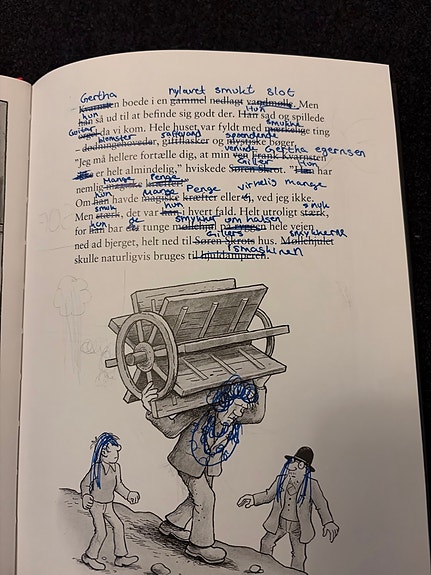 Gertha nylavet smukt slot
Kvarnsten boede i en gammel nedlagt vandmølle. Men
hun Hun
han så ud til at befinde sig godt der. Han sad og spillede
Guitar smukke
da vi kom. Hele huset var fyldt med mærkelige ting
blomster saftevand spændende
– dødningehoveder, giftflasker og mystiske bøger.
veninde Gertha egernsen
"Jeg må hellere fortælle dig, at min ven Frank Kvarnsten
Giller Hun
er helt almindelig," hviskede Søren Skrot. "Han har
Mange Penge
nemlig magiske kræfter."
hun Mange Penge virkelig mange
Om han havde magiske kræfter eller ej, ved jeg ikke.
smuk hun smuk
Men stærk, det var han i hvert fald. Helt utroligt stærk,
hun de smykker om halsen
for han bar de tunge møllehjul på ryggen hele vejen
Gillers smykkerne
ned ad bjerget, helt ned til Søren Skrots hus. Møllehjulet
smaskinen
skulle naturligvis bruges til hjuldamperen.